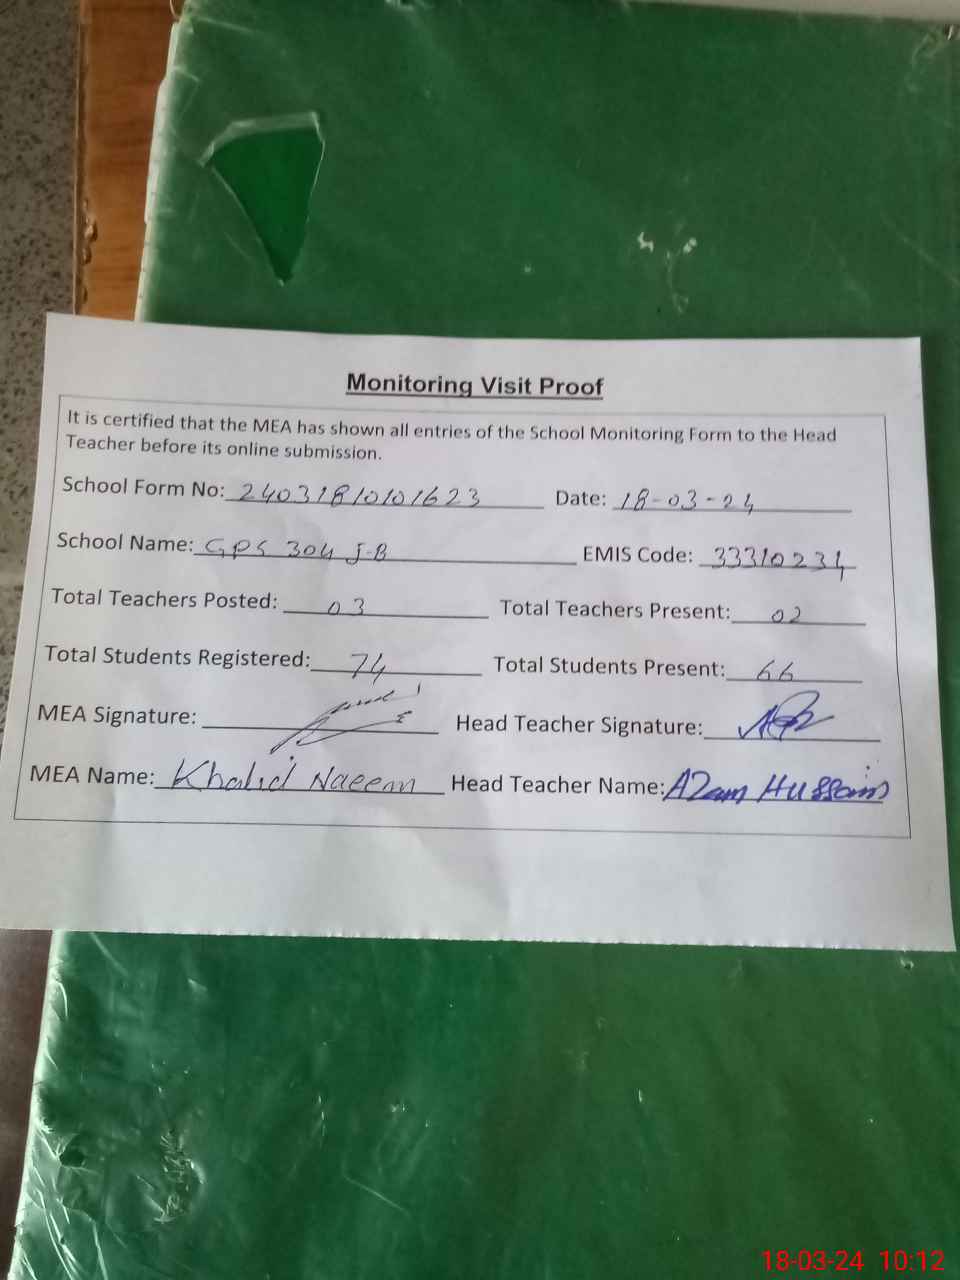 Monitoring Visit Proof
It is certified that the MEA has shown all entries of the School Monitoring Form to the Head
Teacher before its online submission.
School Form No: 24031810101623 Date: 18-03-24
School Name: GPS 304 J-B EMIS Code: 33310234
Total Teachers Posted: 03 Total Teachers Present: 02
Total Students Registered: 74 Total Students Present: 66
MEA Signature: Head Teacher Signature:
MEA Name: Khalid Naeem Head Teacher Name: Azam Hussain
18-03-24 10:12